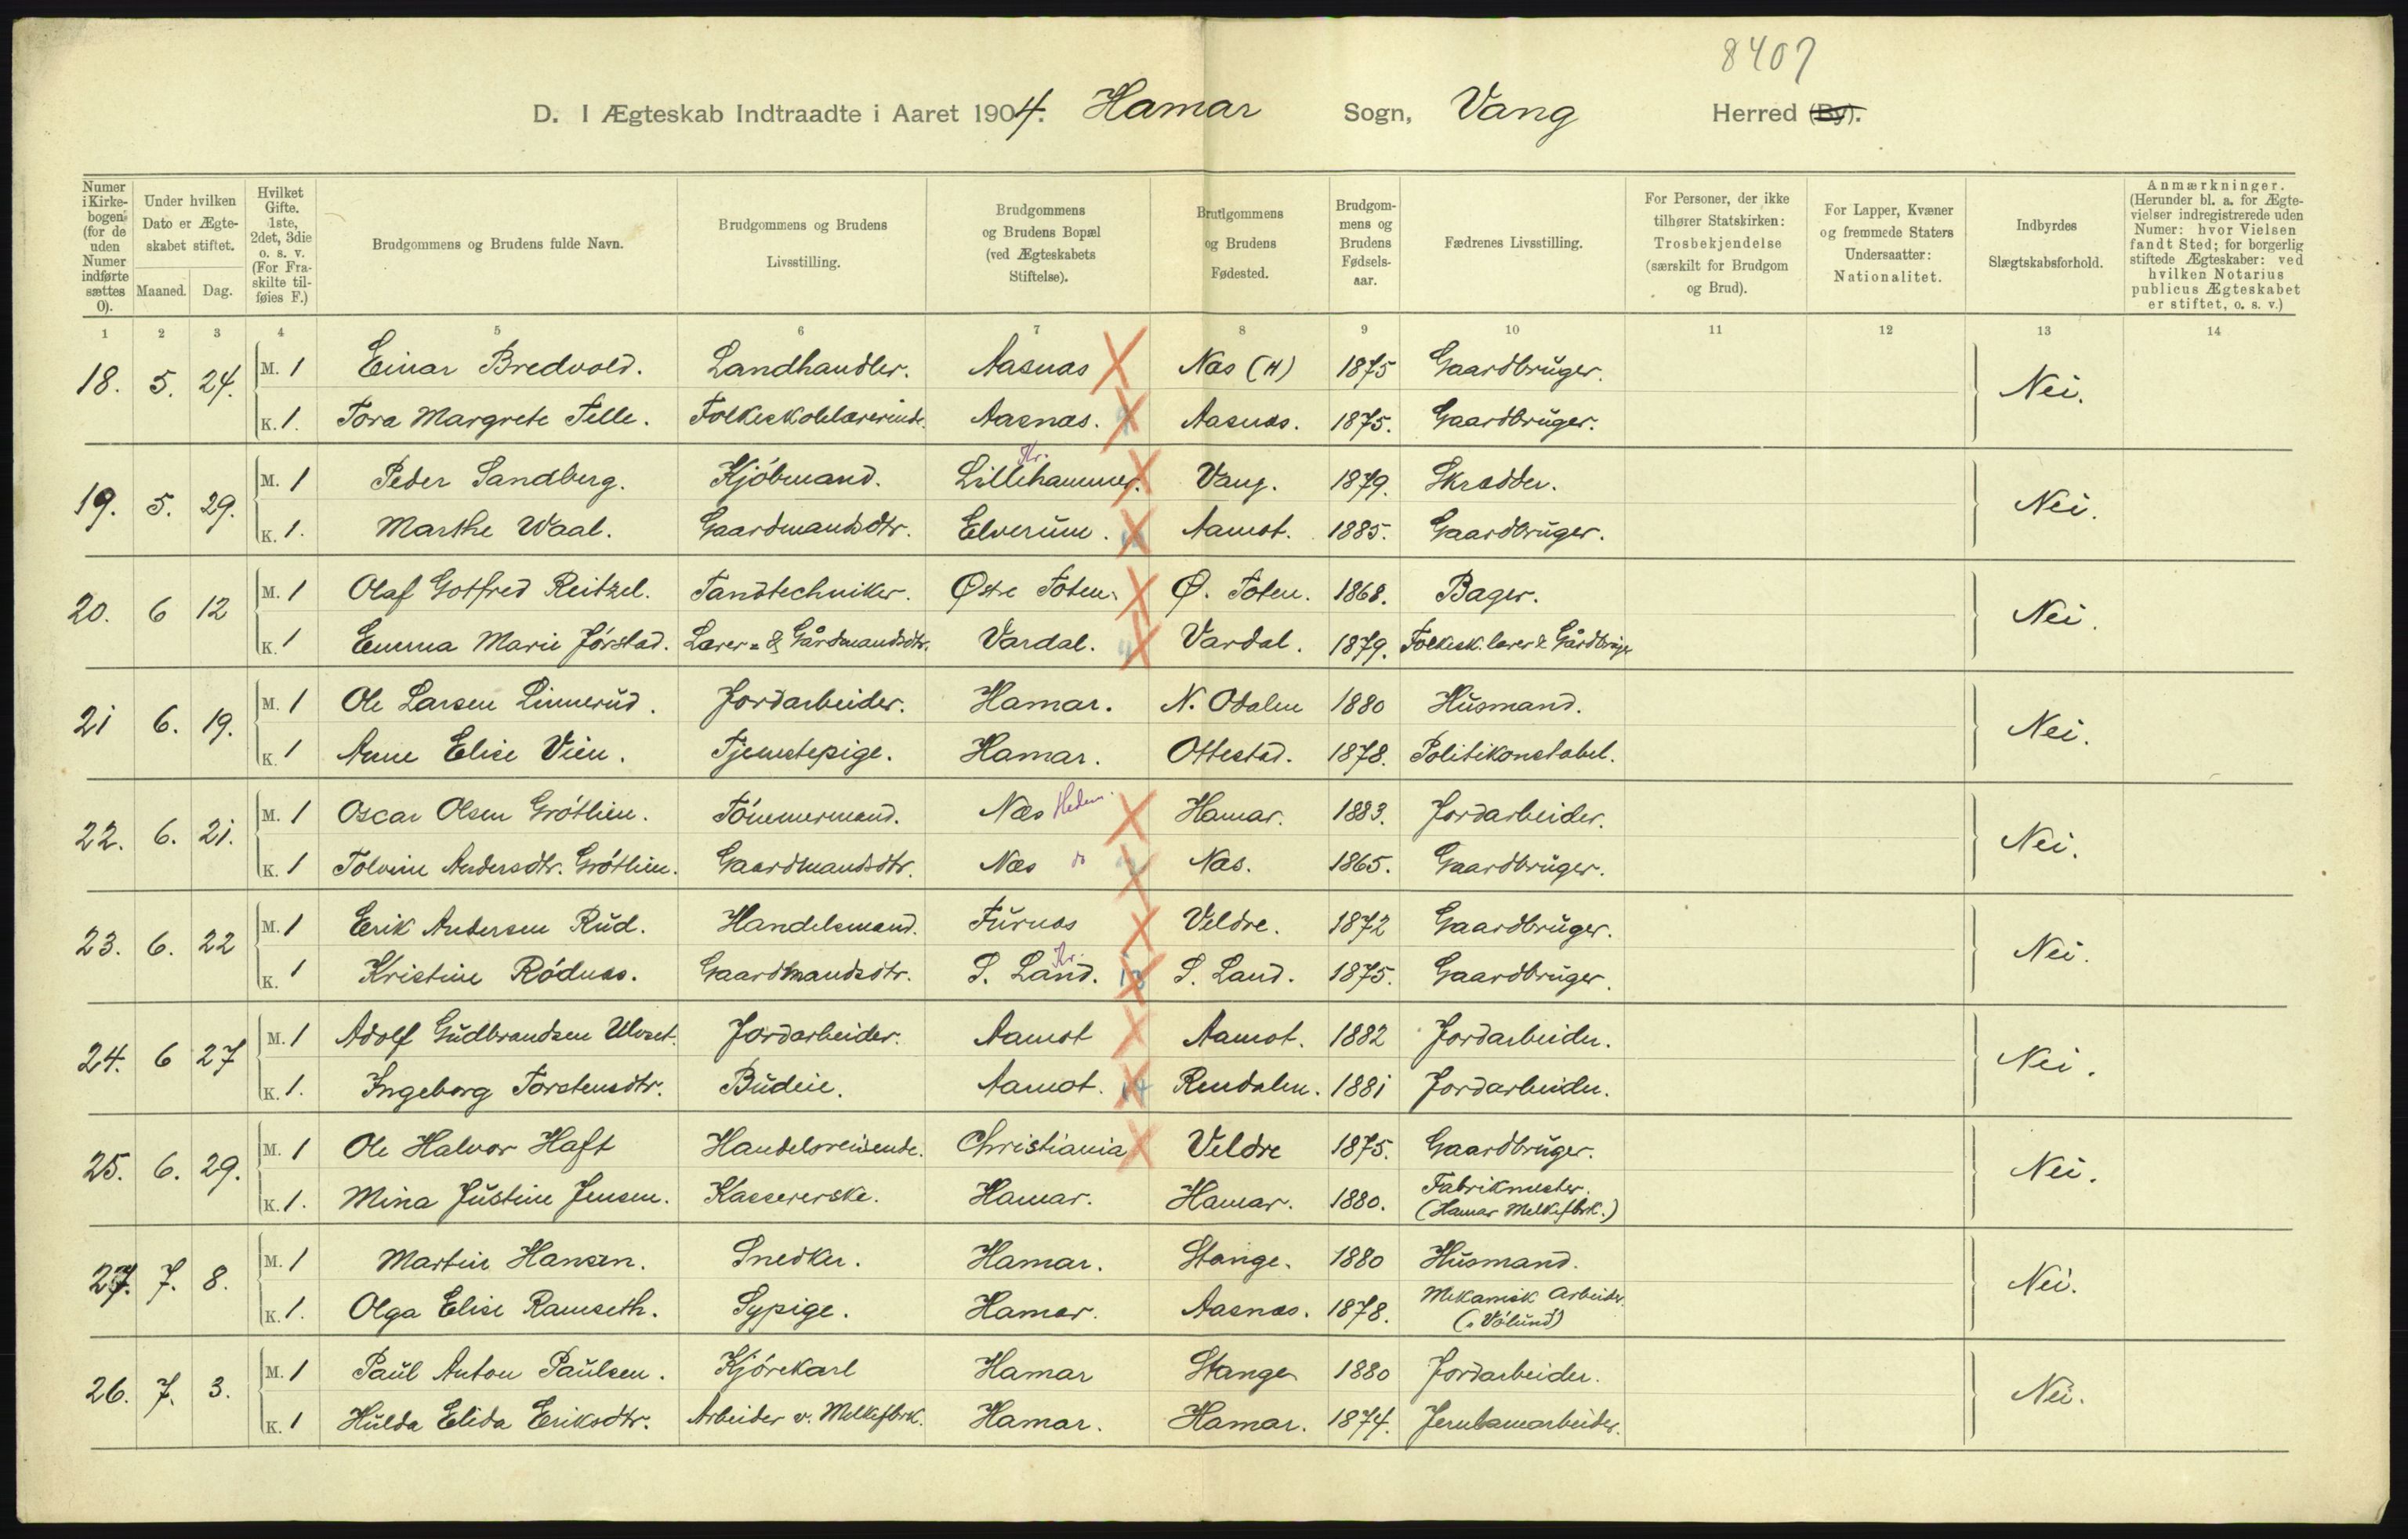 8407
D. I Ægteskab Indtraadte i Aaret 1904. Hamar Sogn, Vang Herred (By).
Numer i Kirkebogen (for de uden Numer indførte sættes 0).
Under hvilken Dato er Ægteskabet stiftet.
Maaned. Dag.
Hvilket Gifte. 1ste, 2det, 3die o. s. v. (For Fraskilte tilføies F.)
Brudgommens og Brudens fulde Navn.
Brudgommens og Brudens Livsstilling.
Brudgommens og Brudens Bopæl (ved Ægteskabets Stiftelse).
Brudgommens og Brudens Fødested.
Brudgommens og Brudens Fødselsaar.
Fædrenes Livsstilling.
For Personer, der ikke tilhører Statskirken: Trosbekjendelse (særskilt for Brudgom og Brud).
For Lapper, Kvæner og fremmede Staters Undersaatter: Nationalitet.
Indbyrdes Slægtskabsforhold.
Anmærkninger. (Herunder bl. a. for Ægtevielser indregistrerede uden Numer: hvor Vielsen fandt Sted; for borgerlig stiftede Ægteskaber: ved hvilken Notarius publicus Ægteskabet er stiftet, o. s. v.)
1 2 3 4 5 6 7 8 9 10 11 12 13 14
18. 5. 24. M. 1 Einar Bredvold. Landhandler. Aasnæs Næs (H) 1875 Gaardbruger. Nei.
K. 1. Tora Margrete Telle. Folkeskolelærerinde. Aasnæs. Aasnæs. 1875. Gaardbruger.
19. 5. 29. M. 1 Peder Sandberg. Kjöbmand. Lillehammer. Kr. Vang. 1879. Skrædder. Nei.
K. 1. Marthe Waal. Gaardmandsdtr. Elverum. Aamot. 1885. Gaardbruger.
20. 6 12 M. 1 Olaf Gotfred Reitzel. Tandtechniker. Østre Toten. Ø. Toten. 1868. Bager. Nei.
K. 1 Emma Marie Jørstad. Lærer- & Gårdmandsdtr. Vardal. Vardal. 1879. Folkesk.lærer & Gårdbruger
21 6. 19. M. 1 Ole Larsen Linnerud. Jordarbeider. Hamar. N. Odalen 1880 Husmand. Nei.
K. 1 Anne Elise Vien. Tjenestepige. Hamar. Ottestad. 1878. Politikonstabel.
22. 6. 21. M. 1 Oscar Olsen Gröthien. Tömmermand. Næs Hedem. Hamar. 1883. Jordarbeider. Nei.
K. 1 Tolvine Andersdtr. Gröthien. Gaardmandsdtr. Næs do Næs. 1865. Gaardbruger.
23. 6. 22 M. 1 Erik Andersen Rud. Handelsmand. Furnæs Veldre. 1872 Gaardbruger. Nei.
K. 1 Kristine Rödnæs. Gaardmandsdtr. S. Land. Kr. 13 S. Land. 1875. Gaardbruger.
24. 6 27 M. 1 Adolf Gudbrandsen Ulvset. Jordarbeider. Aamot Aamot. 1882 Jordarbeider. Nei.
K. 1. Ingeborg Torstensdtr. Budeie. Aamot. 14 Rendalen. 1881 Jordarbeider.
25. 6. 29. M. 1 Ole Halvor Haft Handelsreisende. Christiania Veldre 1875. Gaardbruger. Nei.
K. 1. Mina Justine Jensen. Kassererske. Hamar. Hamar. 1880. Fabrikmester. (Hamar Melkefbrk.)
27. 7. 8. M. 1 Martin Hansen. Snedker. Hamar. Stange. 1880 Husmand. Nei.
K. 1. Olga Elise Ramseth. Sypige. Hamar. Aasnæs. 1878. Mekanisk Arbeider. (Völund)
26. 7. 3. M. 1 Paul Anton Paulsen. Kjörekarl Hamar Stange 1880 Jordarbeider. Nei.
K. 1 Hulda Elida Eriksdtr. Arbeider v. Melkefbrk. Hamar. Hamar. 1874. Jernbanearbeider.